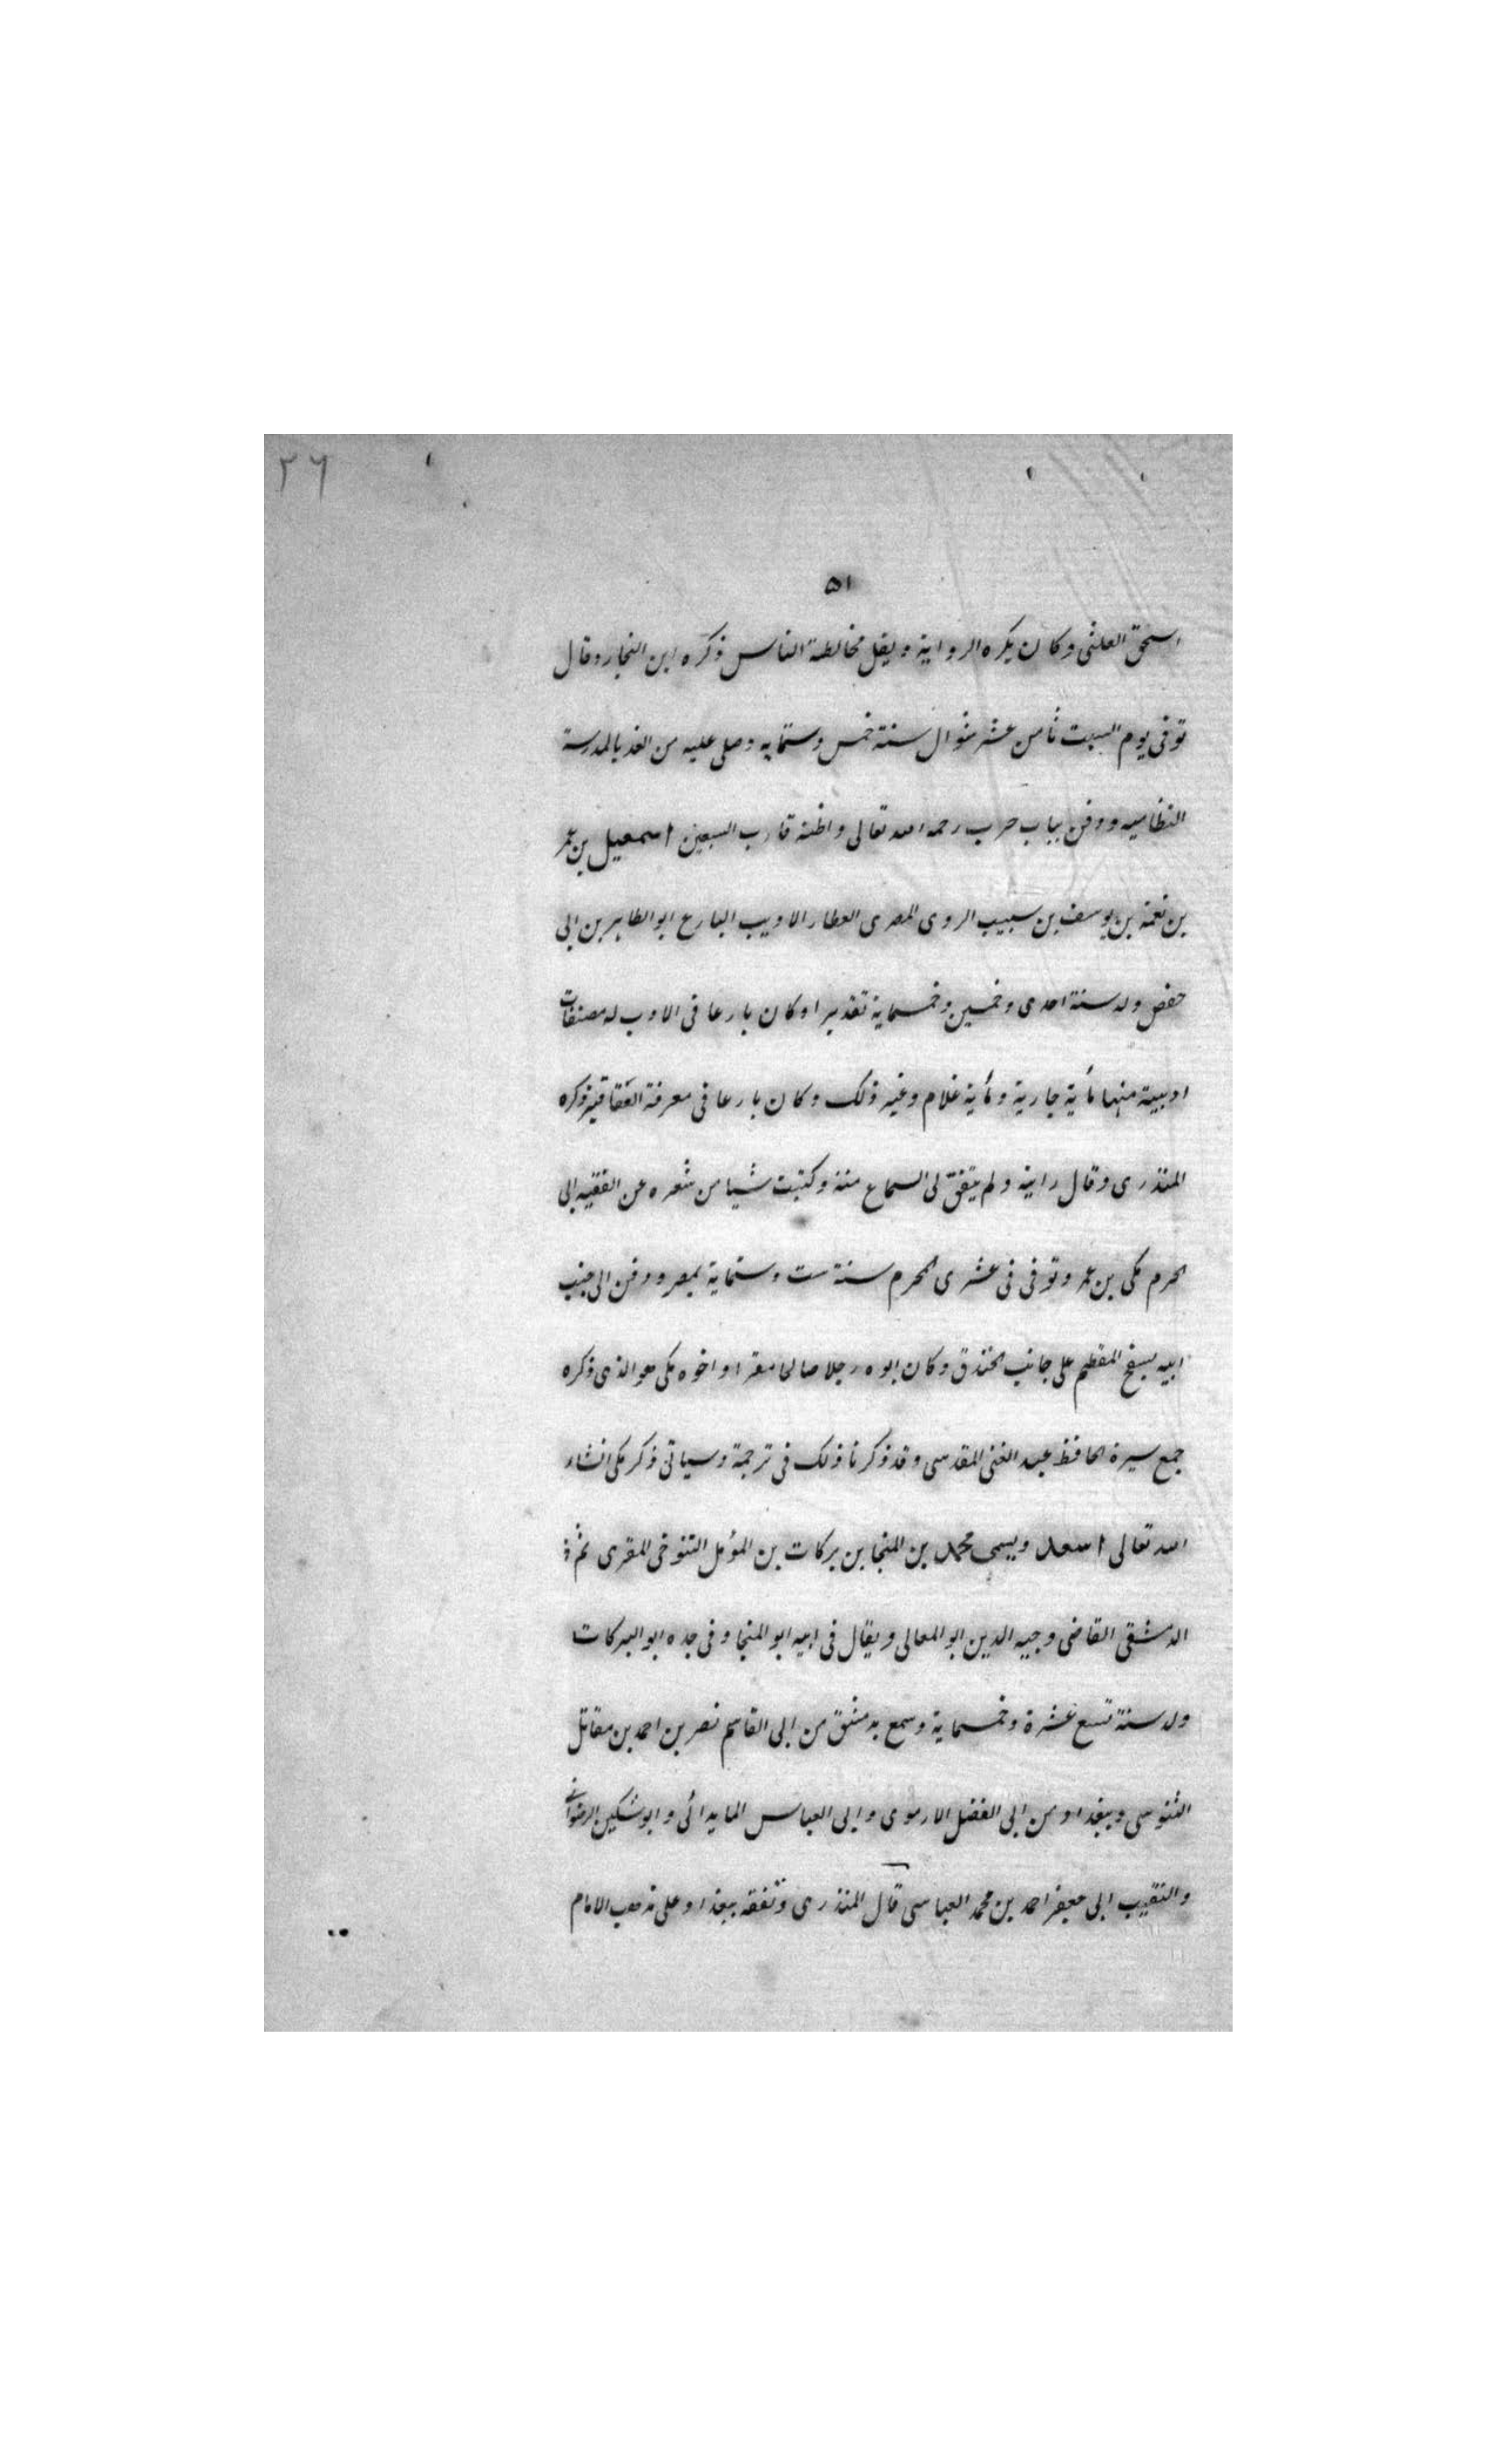 ٢٦
٥١
اسحق العلثى وكان يكره الرواية ويقل مخالطة الناس ذكره ابن النجار وقال
توفى يوم السبت ثامن عشر شوال سنة خمس وستمايه وصلى عليه من الغد بالمدرسة
النظاميه ودفن بباب حرب رحمه الله تعالى واظنه قارب السبعين اسمعيل بن عمر
بن نعمة بن يوسف بن سبيب الروى المصرى العطار الاديب البارع ابو الطاهر بن ابى
حفص ولد سنة احدى وخمسين وخمسماية تقديرا وكان بارعا فى الادب له مصنفات
ادبية منها مأية جارية ومأية غلام وغير ذلك وكان بارعا فى معرفة العقاقير ذكره
المنذرى وقال رايته ولم يتفق لى السماع منه وكتبت شيا من شعره عن الفقيه ابى
الحرم مكى بن عمر وتوفى فى عشرى المحرم سنة ست وستماية بمصر ودفن الى جنب
ابيه بسفح المقطم على جانب الخندق وكان ابوه رجلا صالحا مقرا واخوه مكى هو الذى ذكره
جمع سيرة الحافظ عبد الغنى المقدسى وقد ذكرنا ذلك فى ترجمة وسياتى ذكر مكى انشاء
الله تعالى اسعد ويسمى محمد بن المنجا بن بركات بن المؤمل التنوخى المقرى ثم
الدمشقى القاضى وجيه الدين ابو المعالى ويقال فى ابيه ابو المنجا وفى جده ابو البركات
ولد سنة تسع عشرة وخمسماية وسمع بدمشق من ابى القاسم نصر بن احمد بن مقاتل
السوسى وببغداد من ابى الفضل الارموى وابى العباس المايدائى وانوشتكين الرضوانى
والنقيب ابى جعفر احمد بن محمد العباسى قال المنذرى وتفقه ببغداد على مذهب الامام